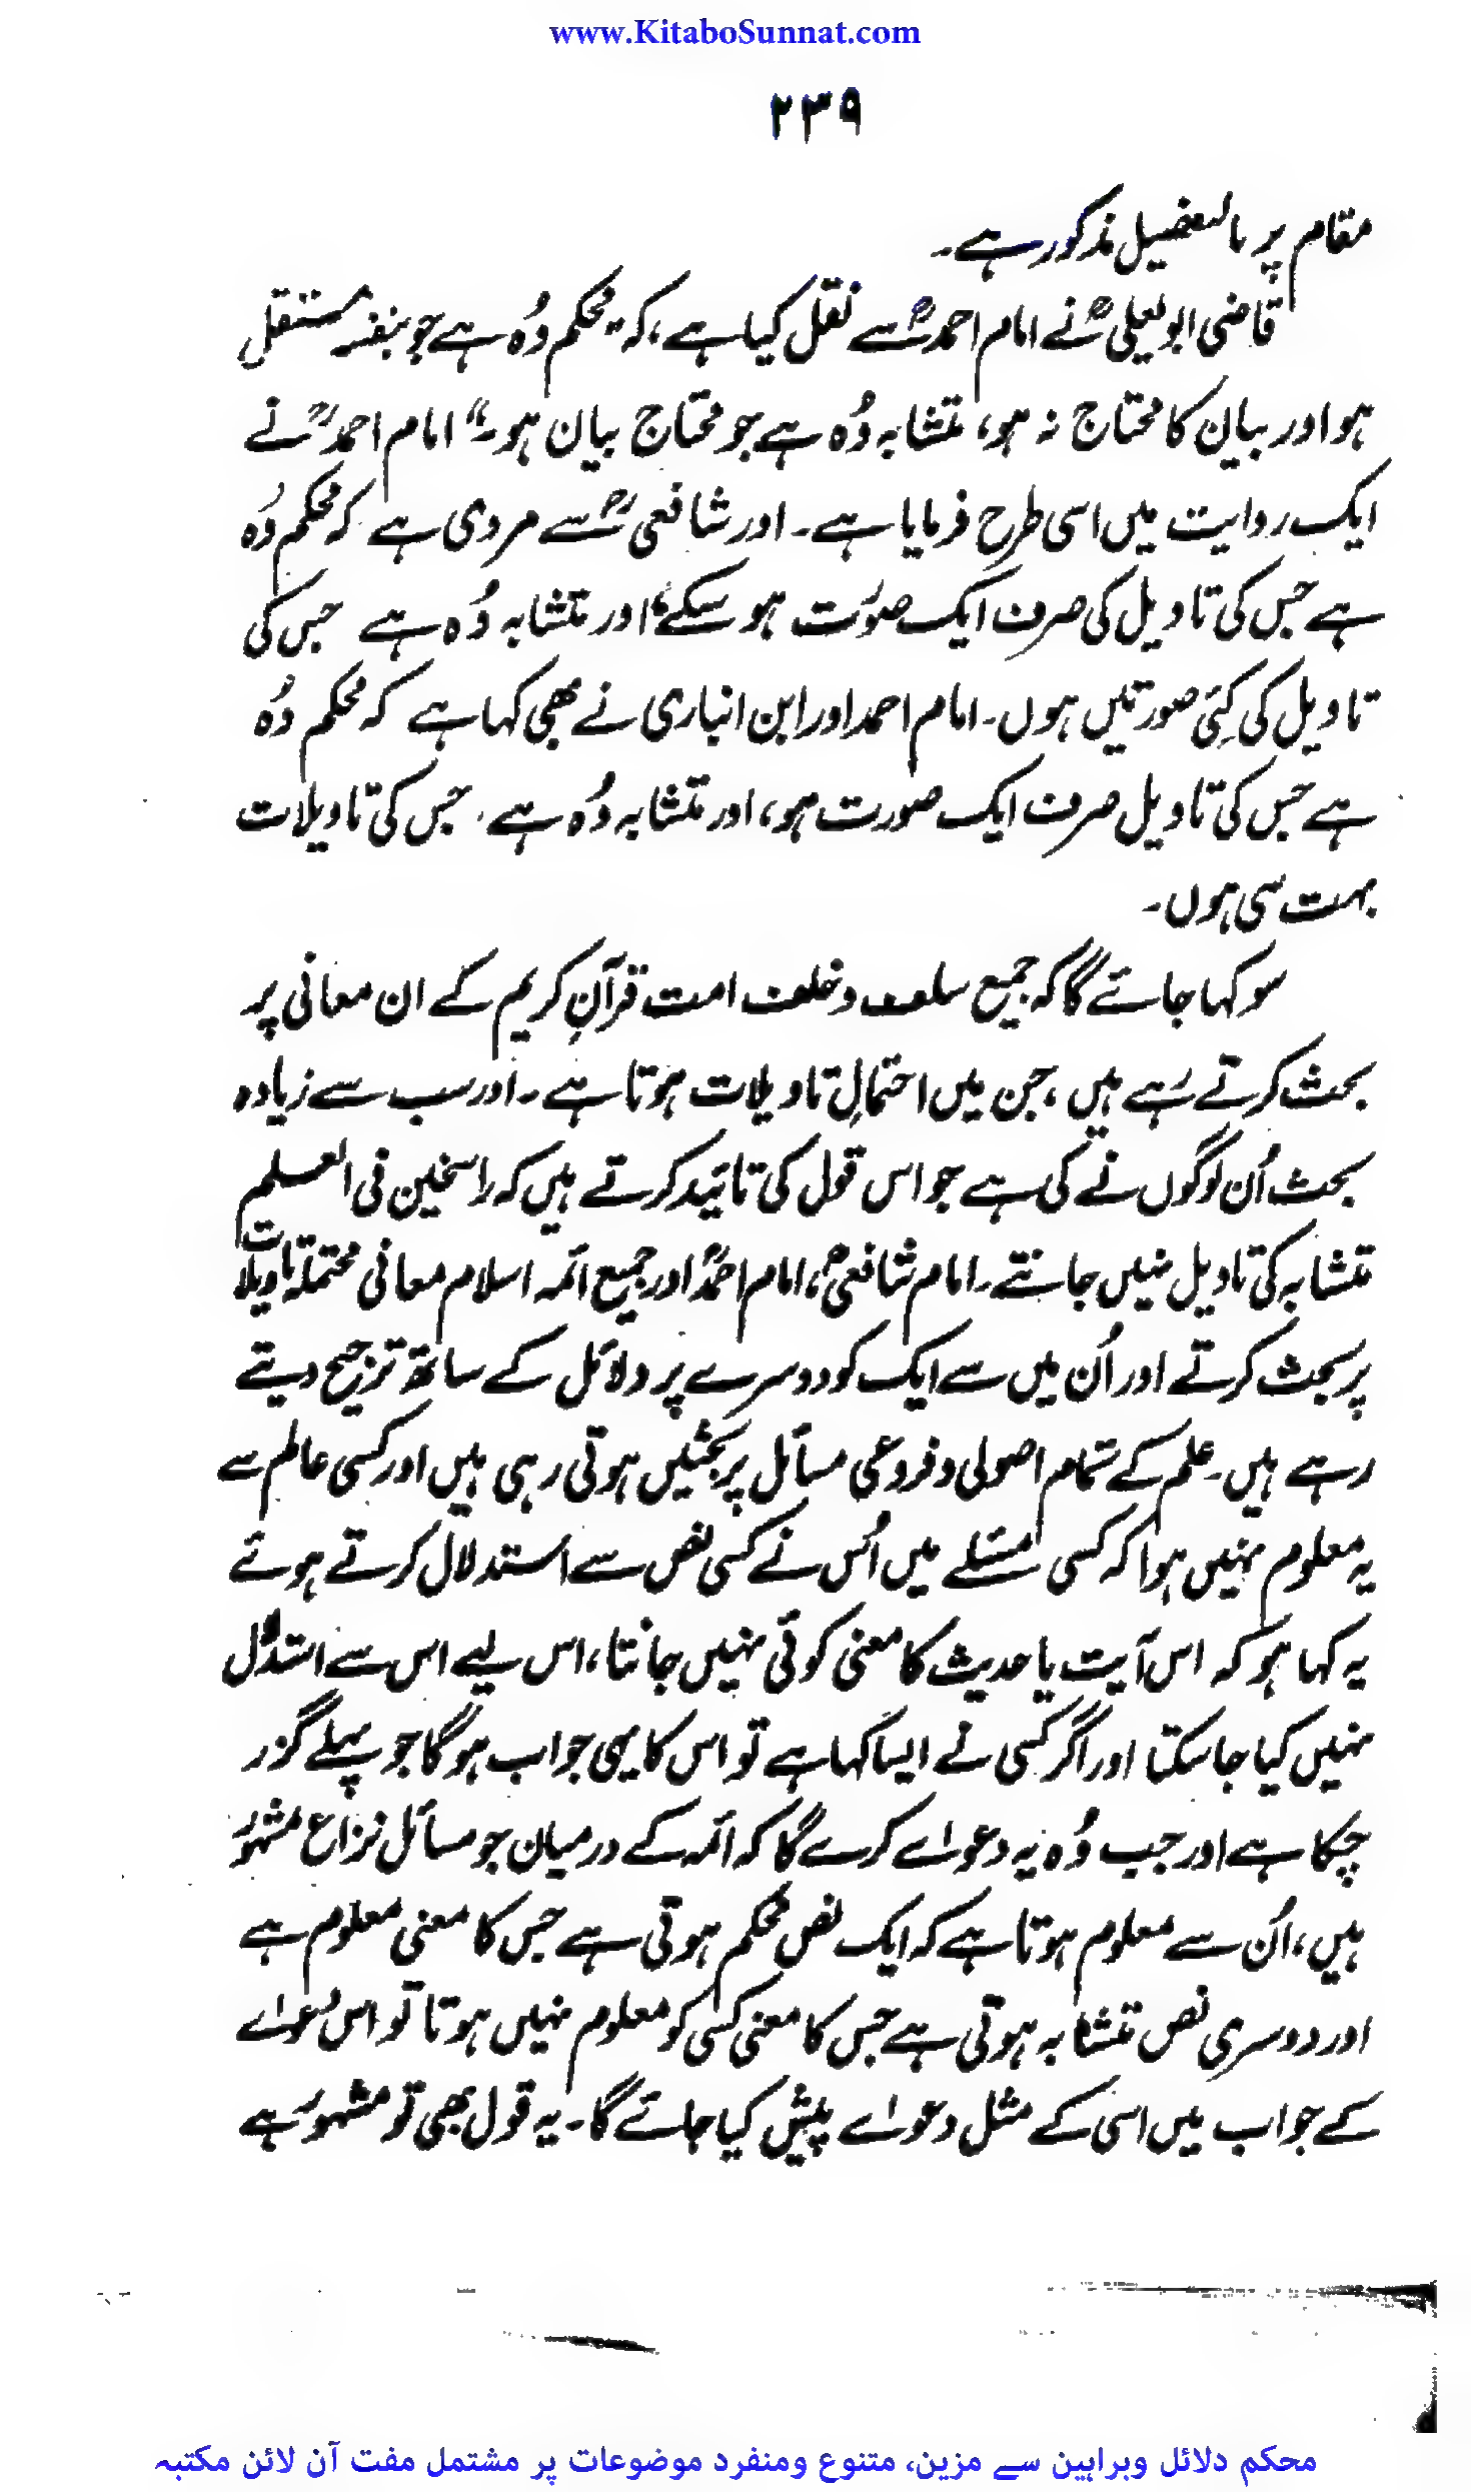 www.KitaboSunnat.com
۲۳۹
مقام پر بالتفصیل مذکور ہے۔
قاضی ابو یعلیٰؒ نے امام احمدؒ سے نقل کیا ہے، کہ "محکم وُہ ہے جو بنفسہٖ مستقل
ہو اور بیان کا محتاج نہ ہو، متشابہ وُہ ہے جو محتاج بیان ہو۔" امام احمدؒ نے
ایک روایت میں اسی طرح فرمایا ہے۔ اور شافعیؒ سے مروی ہے کہ محکم وُہ
ہے جس کی تاویل کی صرف ایک صورت ہو سکے؛ اور متشابہ وُہ ہے جس کی
تاویل کی کئی صورتیں ہوں۔ امام احمد اور ابن انباری نے بھی کہا ہے کہ محکم وُہ
ہے جس کی تاویل صرف ایک صورت ہو، اور متشابہ وُہ ہے۔ جس کی تاویلات
بہت سی ہوں۔
سو کہا جائے گا کہ جمیع سلف و خلف امت قرآنِ کریم کے ان معانی پر
بحث کرتے رہے ہیں، جن میں احتمالِ تاویلات ہوتا ہے۔ اور سب سے زیادہ
بحث اُن لوگوں نے کی ہے جو اس قول کی تائید کرتے ہیں کہ راسخین فی العلم
متشابہ کی تاویل نہیں جانتے۔ امام شافعیؒ، امام احمدؒ اور جمیع ائمہ اسلام معانی محتملہ تاویلات
پر بحث کرتے اور اُن میں سے ایک کو دوسرے پر دلائل کے ساتھ ترجیح دیتے
رہے ہیں۔ علم کے تمام اصولی و فروعی مسائل پر بحثیں ہوتی رہی ہیں اور کسی عالم سے
یہ معلوم نہیں ہوا کہ کسی مسئلے میں اُس نے کسی نص سے استدلال کرتے ہوئے
یہ کہا ہو کہ اس آیت یا حدیث کا معنی کوئی نہیں جانتا، اس لیے اس سے استدلال
نہیں کیا جا سکتا اور اگر کسی نے ایسا کہا ہے تو اس کا یہی جواب ہو گا جو پہلے گزر
چکا ہے اور جب وُہ یہ دعوٰے کرے گا کہ ائمہ کے درمیان جو مسائل نزاع مشہور
ہیں، اُن سے معلوم ہوتا ہے کہ ایک نص محکم ہوتی ہے جس کا معنی معلوم ہے
اور دوسری نص متشابہ ہوتی ہے جس کا معنی کسی کو معلوم نہیں ہوتا تو اس دعوٰے
کے جواب میں اسی کے مثل دعوٰے پیش کیا جائے گا۔ یہ قول بھی تو مشہور ہے
محکم دلائل وبراہین سے مزین، متنوع ومنفرد موضوعات پر مشتمل مفت آن لائن مکتبہ